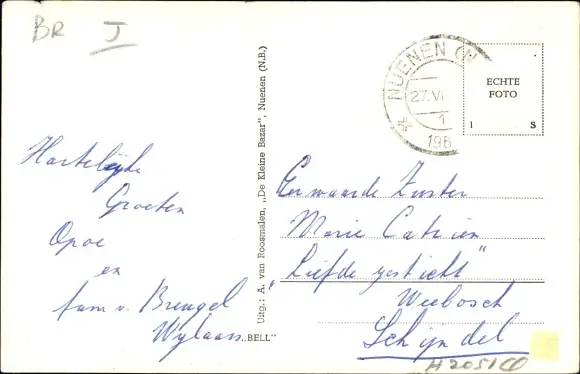 BR J
Hartelijke
Groeten
Opoe
en
fam v. Brengel
Wylaan
Uitg.: A. van Roosmalen, „De Kleine Bazar", Nuenen (N.B.)
„BELL"
NUENEN (N
27.VI
1
196
ECHTE
FOTO
I S
Eerwaarde Zuster
Marie Catrien
"Liefde gesticht"
Weebosch
Schijndel
H2051